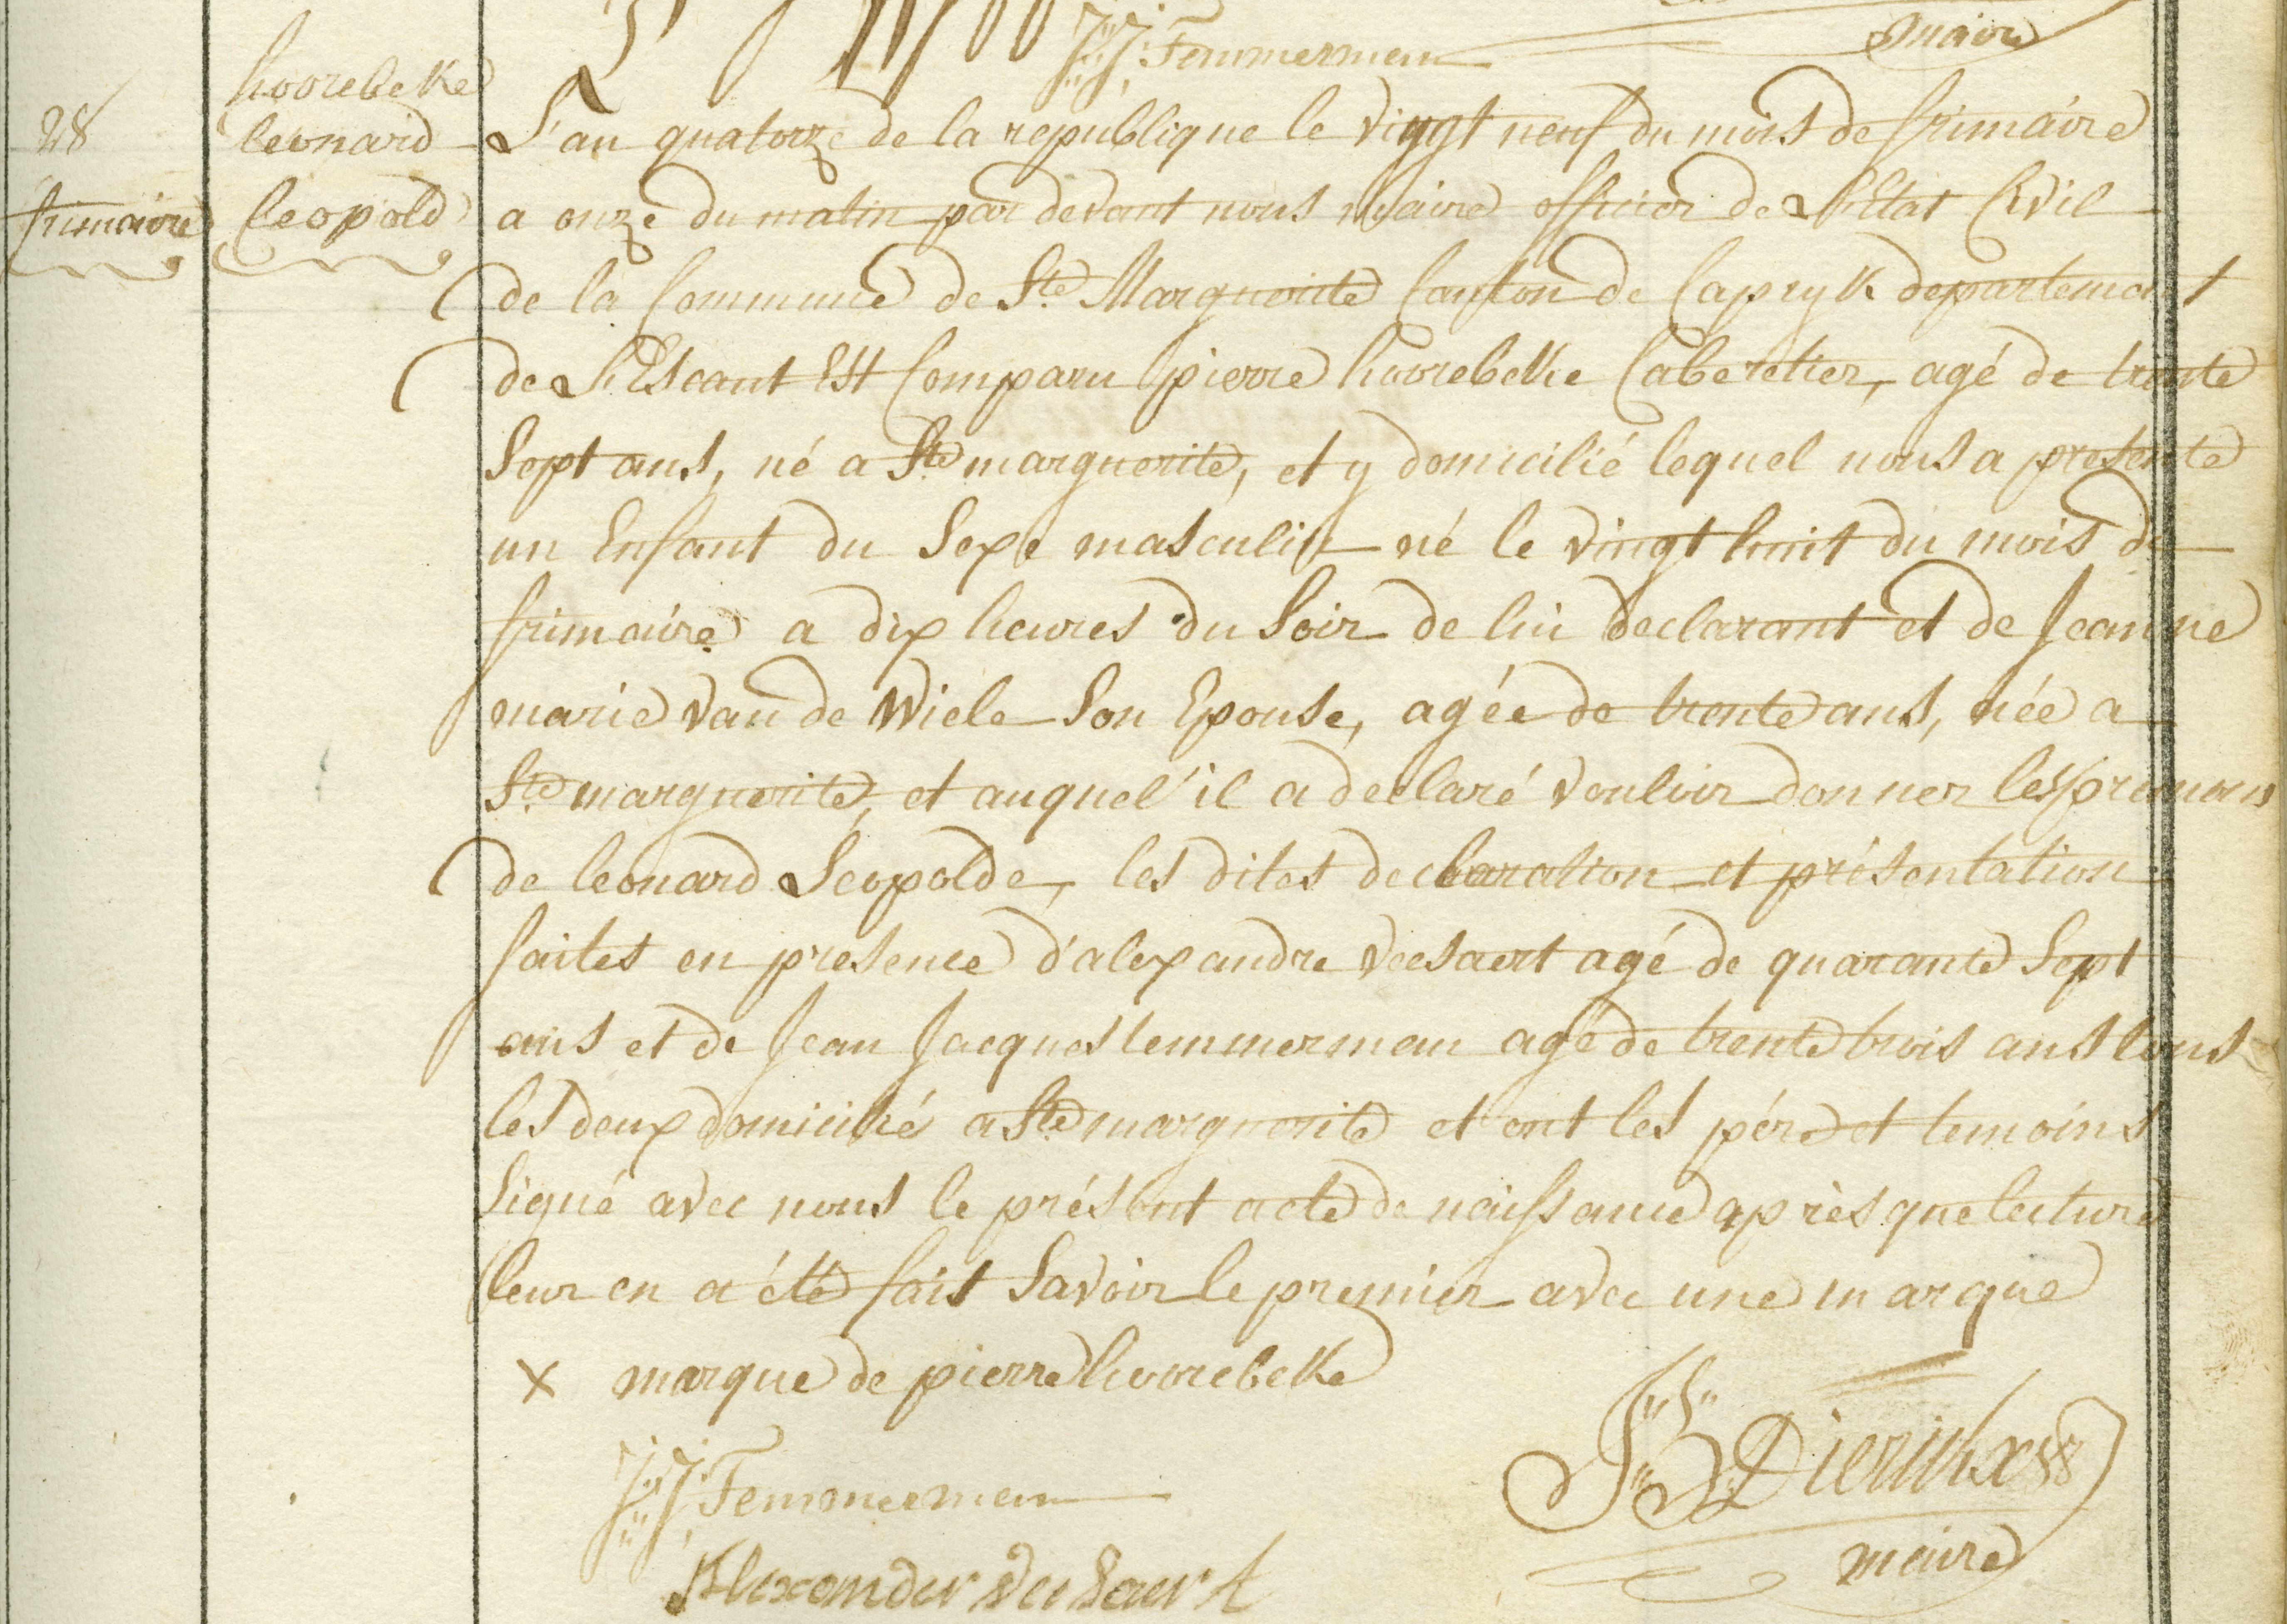 JJ Temmerman
maire
hoorebeke
28 leonard
frimaire leopold
L'an quatorze de la republique le vingt neuf du mois de frimaire
a onze du matin par devant nous maire officier de L'Etat Civil
de la Commune de Ste Marguerite Canton de Capryk departement
de L'Escaut Est Comparu pierre hoorebeke Cabaretier, agé de trente
Sept ans, né a Ste marguerite, et y domicilié lequel nous a presenté
un Enfant du Sexe masculin né le vingt huit du mois de
frimaire a dix heures du Soir de lui declarant et de Jeanne
marie van de Wiele Son Epouse, agée de trente ans, née a
Ste marguerite, et auquel il a declaré vouloir donner les prenoms
de leonard Leopolde, les dites declaration et présentation
faites en presence d'alexandre veesaert agé de quarante Sept
ans et de Jean Jacques temmerman agé de trente trois ans tous
les deux domicilié a Ste marguerite et ont les pére et temoins
Signé avec nous le présent acte de naissance après que lecture
leur en a été fait Savoir le premier avec une marque
x marque de pierre hoorebeke
JJ Temmerman
JB Dierinkx
maire
Alexander